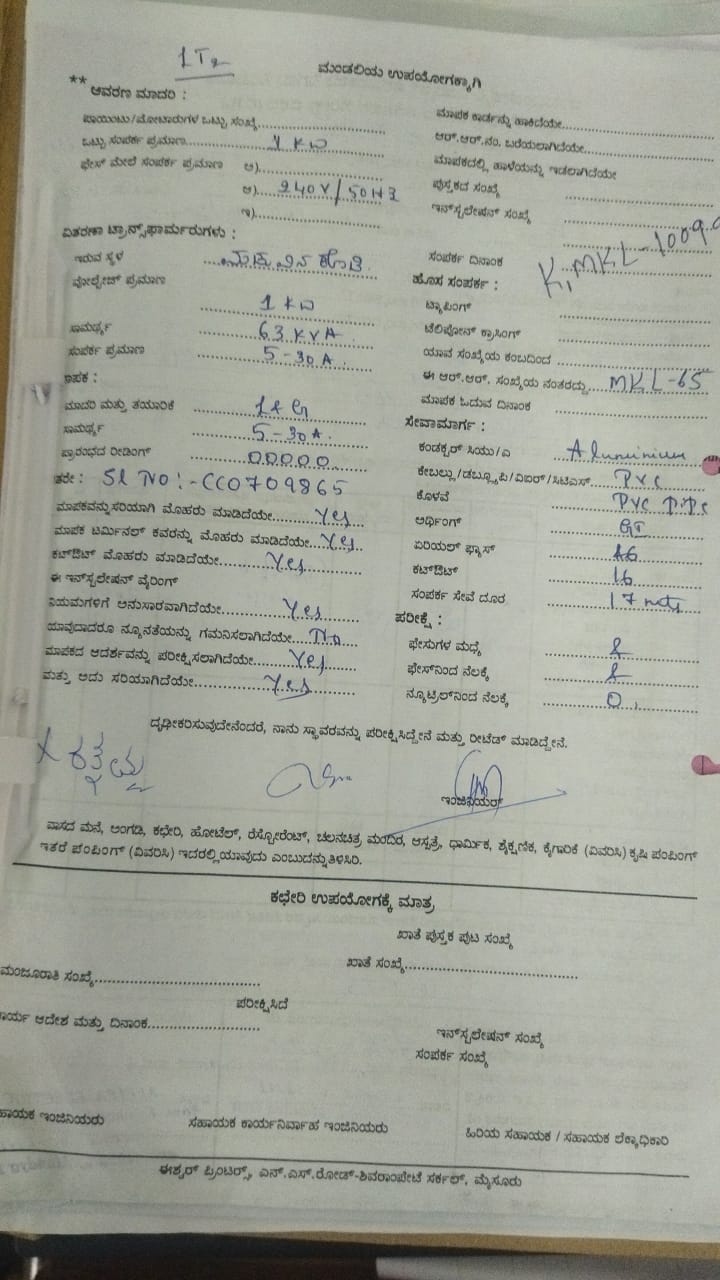 ಮಂಡಲಿಯ ಉಪಯೋಗಕ್ಕಾಗಿ
** ಆವರಣ ಮಾದರಿ :
ಪಾಯಿಂಟು/ಮೋಟಾರುಗಳ ಒಟ್ಟು ಸಂಖ್ಯೆ
ಒಟ್ಟು ಸಂಪರ್ಕ ಪ್ರಮಾಣ 1 KW
ಫೇಸ್ ಮೇಲೆ ಸಂಪರ್ಕ ಪ್ರಮಾಣ ಅ)
ಆ) 240V/50HZ
ಇ)
ವಿತರಣಾ ಟ್ರಾನ್ಸ್‌ಫಾರ್ಮರುಗಳು :
ಇರುವ ಸ್ಥಳ
ವೋಲ್ಟೇಜ್ ಪ್ರಮಾಣ
1 KW
ಸಾಮರ್ಥ್ಯ 63 KVA.
ಸಂಪರ್ಕ ಪ್ರಮಾಣ 5-30A.
ಮಾಪಕ :
ಮಾದರಿ ಮತ್ತು ತಯಾರಿಕೆ L&G
ಸಾಮರ್ಥ್ಯ 5-30A.
ಪ್ರಾರಂಭದ ರೀಡಿಂಗ್ 00000
ತರೇ : Sl No :- CC0709865
ಮಾಪಕವನ್ನು ಸರಿಯಾಗಿ ಮೊಹರು ಮಾಡಿದೆಯೇ Yes
ಮಾಪಕ ಟರ್ಮಿನಲ್ ಕವರನ್ನು ಮೊಹರು ಮಾಡಿದೆಯೇ Yes
ಕಟ್‌ಔಟ್ ಮೊಹರು ಮಾಡಿದೆಯೇ Yes
ಈ ಇನ್‌ಸ್ಟಲೇಷನ್ ವೈರಿಂಗ್
ನಿಯಮಗಳಿಗೆ ಅನುಸಾರವಾಗಿದೆಯೇ Yes
ಯಾವುದಾದರೂ ನ್ಯೂನತೆಯನ್ನು ಗಮನಿಸಲಾಗಿದೆಯೇ No
ಮಾಪಕದ ಆದರ್ಶವನ್ನು ಪರೀಕ್ಷಿಸಲಾಗಿದೆಯೇ Yes
ಮತ್ತು ಅದು ಸರಿಯಾಗಿದೆಯೇ Yes
ಮಾಪಕ ಕಾರ್ಡನ್ನು ಹಾಕಿದೆಯೇ
ಆರ್.ಆರ್.ನಂ. ಬರೆಯಲಾಗಿದೆಯೇ
ಮಾಪಕದಲ್ಲಿ ಹಾಳೆಯನ್ನು ಇಡಲಾಗಿದೆಯೇ
ಪುಸ್ತಕದ ಸಂಖ್ಯೆ
ಇನ್‌ಸ್ಟಲೇಷನ್ ಸಂಖ್ಯೆ
ಸಂಪರ್ಕ ದಿನಾಂಕ
ಹೊಸ ಸಂಪರ್ಕ :
ಟ್ಯಾಪಿಂಗ್
ಟೆಲಿಫೋನ್ ಕ್ರಾಸಿಂಗ್
ಯಾವ ಸಂಖ್ಯೆಯ ಕಂಬದಿಂದ
ಈ ಆರ್.ಆರ್. ಸಂಖ್ಯೆಯ ನಂತರದ್ದು MKL-65
ಮಾಪಕ ಓದುವ ದಿನಾಂಕ
ಸೇವಾಮಾರ್ಗ :
ಕಂಡಕ್ಟರ್ ಸಿಯು/ಎ Aluminium
ಕೇಬಲ್ಲು/ಡಬ್ಲ್ಯೂಪಿ/ವಿಐಆರ್/ಸಿಟಿಎಸ್ PVC
ಕೊಳವೆ PVC PiPe
ಅರ್ಥಿಂಗ್ GI
ಏರಿಯಲ್ ಫ್ಯೂಸ್ 16
ಕಟ್‌ಔಟ್ 16
ಸಂಪರ್ಕ ಸೇವೆ ದೂರ 17 mets
ಪರೀಕ್ಷೆ :
ಫೇಸುಗಳ ಮಧ್ಯೆ
ಫೇಸ್‌ನಿಂದ ನೆಲಕ್ಕೆ
ನ್ಯೂಟ್ರಲ್‌ನಿಂದ ನೆಲಕ್ಕೆ 0
ದೃಢೀಕರಿಸುವುದೇನೆಂದರೆ, ನಾನು ಸ್ಥಾವರವನ್ನು ಪರೀಕ್ಷಿಸಿದ್ದೇನೆ ಮತ್ತು ರೀಟೆಡ್ ಮಾಡಿದ್ದೇನೆ.
ಇಂಜಿನಿಯರ್
ವಾಸದ ಮನೆ, ಅಂಗಡಿ, ಕಛೇರಿ, ಹೋಟೆಲ್, ರೆಸ್ಟೋರೆಂಟ್, ಚಲನಚಿತ್ರ ಮಂದಿರ, ಆಸ್ಪತ್ರೆ, ಧಾರ್ಮಿಕ, ಶೈಕ್ಷಣಿಕ, ಕೈಗಾರಿಕೆ (ವಿವರಿಸಿ) ಕೃಷಿ ಪಂಪಿಂಗ್
ಇತರೆ ಪಂಪಿಂಗ್ (ವಿವರಿಸಿ) ಇದರಲ್ಲಿ ಯಾವುದು ಎಂಬುದನ್ನು ತಿಳಿಸಿರಿ.
ಕಛೇರಿ ಉಪಯೋಗಕ್ಕೆ ಮಾತ್ರ
ಖಾತೆ ಪುಸ್ತಕ ಪುಟ ಸಂಖ್ಯೆ
ಮಂಜೂರಾತಿ ಸಂಖ್ಯೆ ಖಾತೆ ಸಂಖ್ಯೆ
ಪರೀಕ್ಷಿಸಿದೆ
ಕಾರ್ಯ ಆದೇಶ ಮತ್ತು ದಿನಾಂಕ
ಇನ್‌ಸ್ಟಲೇಷನ್ ಸಂಖ್ಯೆ
ಸಂಪರ್ಕ ಸಂಖ್ಯೆ
ಸಹಾಯಕ ಇಂಜಿನಿಯರು ಸಹಾಯಕ ಕಾರ್ಯನಿರ್ವಾಹ ಇಂಜಿನಿಯರು ಹಿರಿಯ ಸಹಾಯಕ / ಸಹಾಯಕ ಲೆಕ್ಕಾಧಿಕಾರಿ
ಈಶ್ವರ್ ಪ್ರಿಂಟರ್ಸ್, ಎನ್.ಎಸ್.ರೋಡ್-ಶಿವರಾಂಪೇಟೆ ಸರ್ಕಲ್, ಮೈಸೂರು